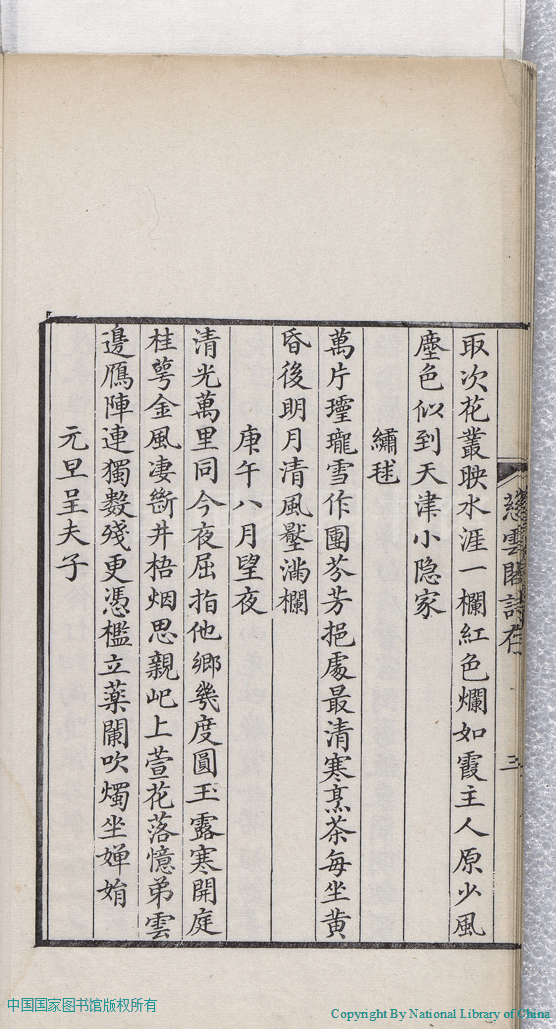 慈雲閣詩存 三
取次花叢映水涯一欄紅色爛如霞主人原少風
塵色似到天津小隐家
繡毬
萬片瓏雪作團芬芳挹處最清寒烹茶每坐黄
昏後明月清風壓滿欄
庚午八月望夜
清光萬里同今夜屈指他鄉幾度圓玉露寒開庭
桂萼金風凄斷井梧烟思親屺上萱花落憶弟雲
邊鴈陣連獨數殘更憑檻立藥闌吹燭坐嬋娟
元旦呈夫子
中国国家图书馆版权所有
Copyright By National Library of China